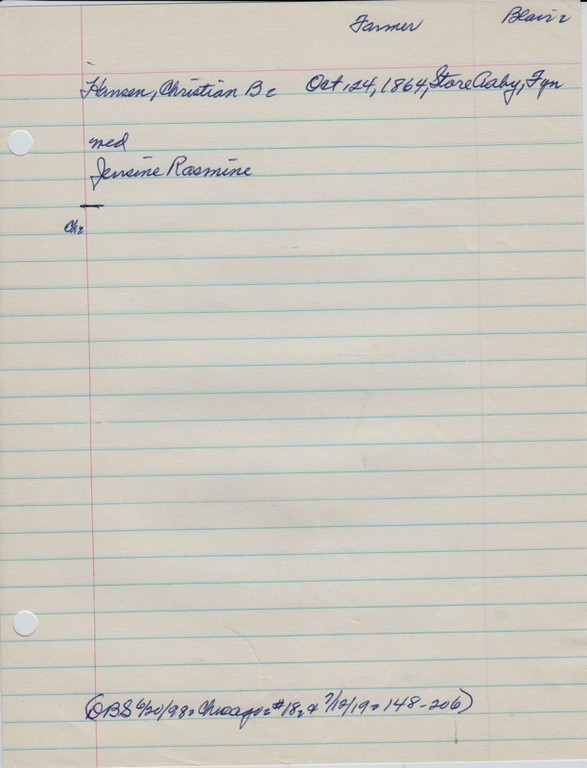 Farmer Blair.
Hansen, Christian B. Oct. 24, 1864, Store Aaby, Fyn
med
Jensine Rasmine
Ch.
(DBS 6/20/98. Chicago. #18, & 7/12/19. 148-206)